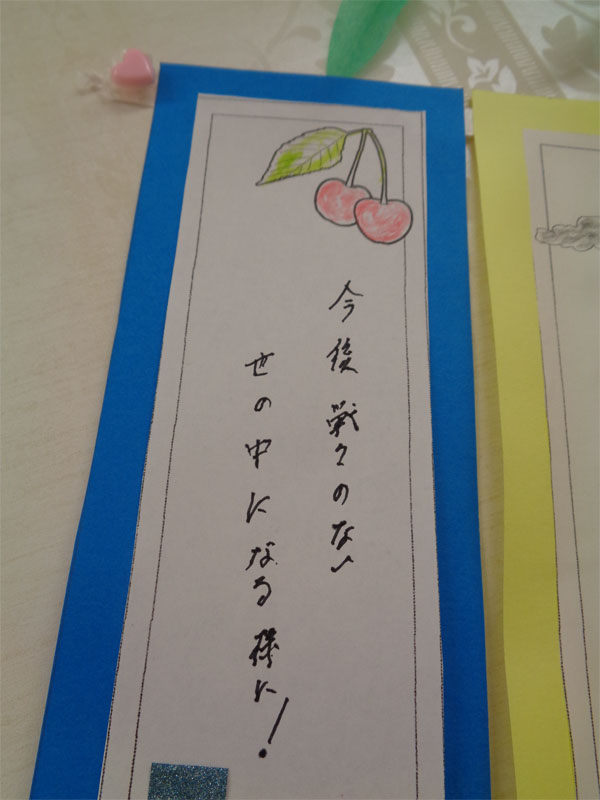 今後戦々のない
世の中になる様に!